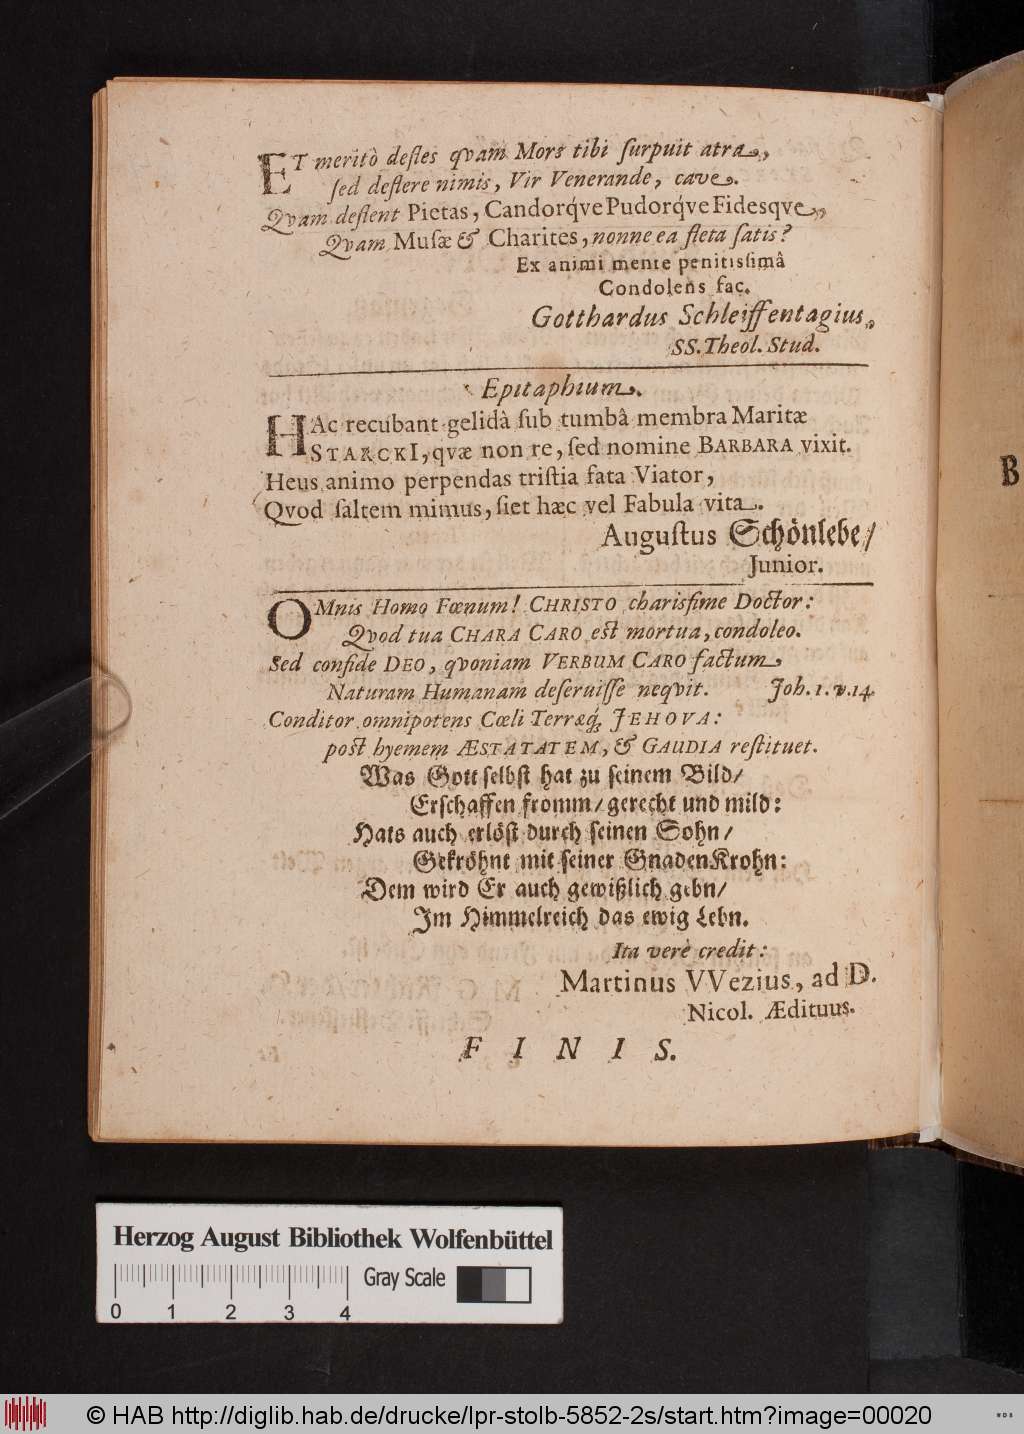 ET meritò defles qvam Mors tibi ſurpuit atra,
ſed deflere nimis, Vir Venerande, cave.
Qvam deflent Pietas, Candorq́ve Pudorq́ve Fidesqve,
Qvam Muſæ & Charites, nonne ea fleta ſatis?
Ex animi mente penitiſsimâ
Condolens fac.
Gotthardus Schleiffentagius,
SS. Theol. Stud.
Epitaphium.
HAc recubant gelidâ ſub tumbâ membra Maritæ
STARCKI, qvæ non re, ſed nomine BARBARA vixit.
Heus animo perpendas triſtia fata Viator,
Qvod ſaltem mimus, ſiet hæc vel Fabula vita.
Auguſtus Schönlebe/
Junior.
OMnis Homo Fœnum! CHRISTO chariſime Doctor:
Qvod tua CHARA CARO est mortua, condoleo.
Sed confide DEO, qvoniam VERBUM CARO factum
Naturam Humanam deſeruiſſe neqvit. Joh. 1. v. 14.
Conditor omnipotens Cœli Terræq́; JEHOVA:
post hyemem ÆSTATATEM, & GAUDIA reſtituet.
Was Gott ſelbſt hat zu ſeinem Bild/
Erſchaffen fromm/ gerecht und mild:
Hats auch erlöſt durch ſeinen Sohn/
Gekröhnt mit ſeiner GnadenKrohn:
Dem wird Er auch gewißlich gebn/
Im Himmelreich das ewig Lebn.
Ita verè credit:
Martinus VVezius, ad D.
Nicol. Ædituus.
F I N I S.
B
Herzog August Bibliothek Wolfenbüttel
Gray Scale
0 1 2 3 4
© HAB http://diglib.hab.de/drucke/lpr-stolb-5852-2s/start.htm?image=00020